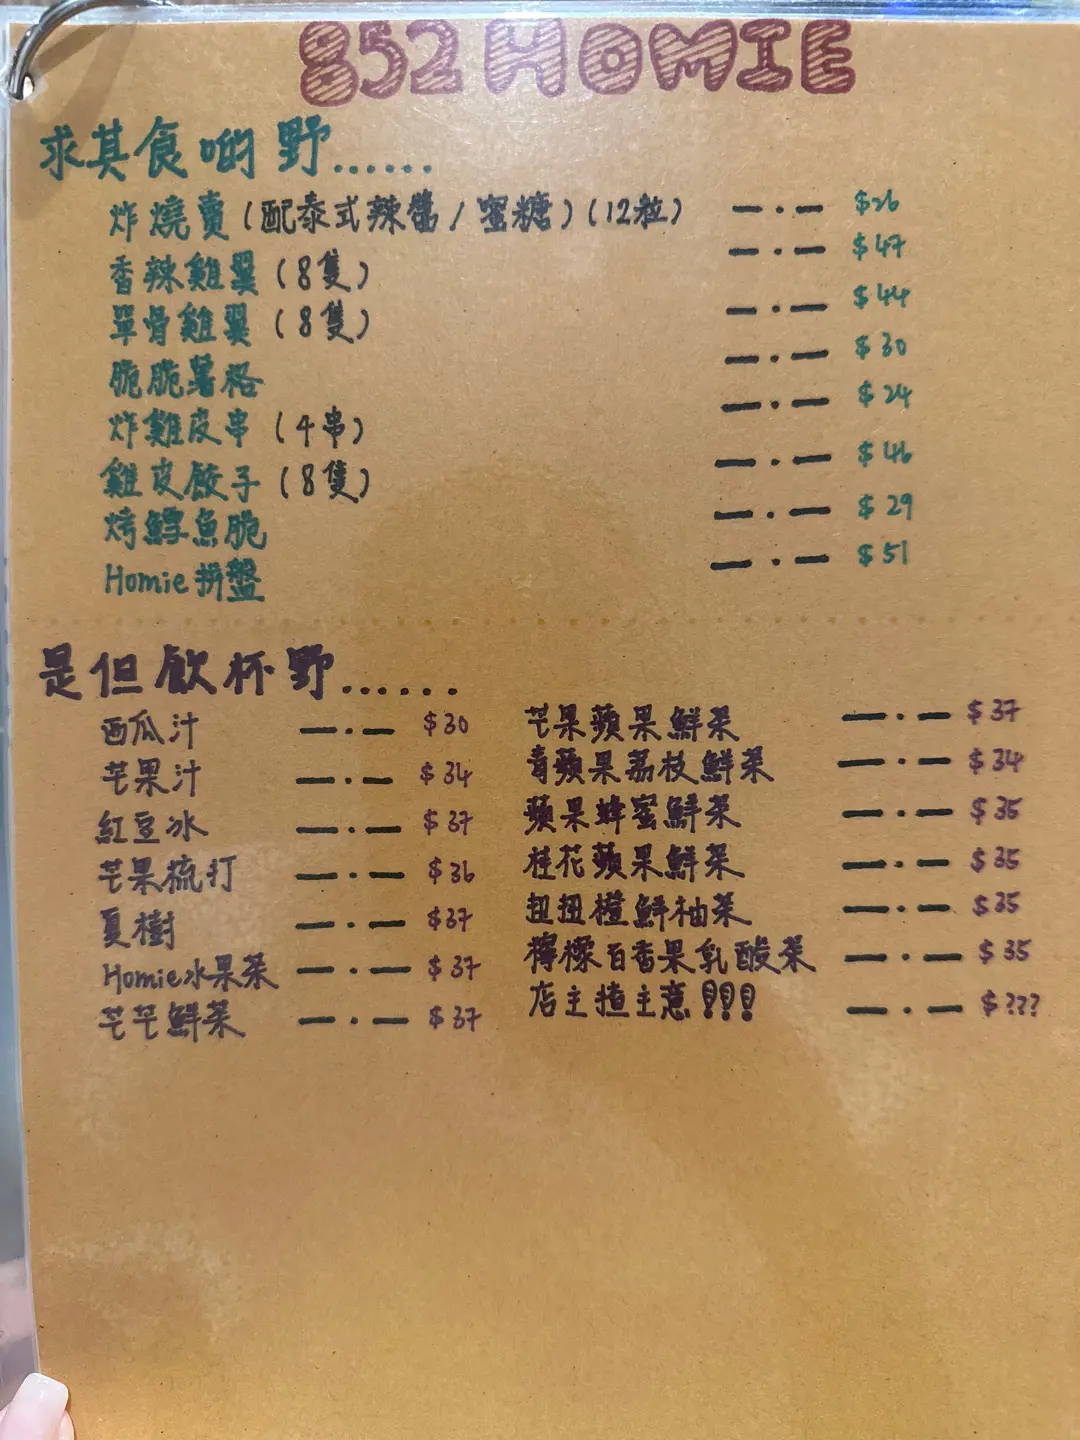 852 HOMIE
求其食啲野......
炸燒賣(配泰式辣醬/蜜糖)(12粒) —·— $26
香辣雞翼(8隻) —·— $47
單骨雞翼(8隻) —·— $44
脆脆薯格 —·— $30
炸雞皮串(4串) —·— $24
雞皮餃子(8隻) —·— $46
烤鱈魚脆 —·— $29
Homie拼盤 —·— $51
是但飲杯野......
西瓜汁 —·— $30
芒果汁 —·— $34
紅豆冰 —·— $37
芒果梳打 —·— $36
夏樹 —·— $37
Homie水果茶 —·— $37
芒芒鮮茶 —·— $37
芒果蘋果鮮茶 —·— $37
青蘋果荔枝鮮茶 —·— $34
蘋果蜂蜜鮮茶 —·— $35
桂花蘋果鮮茶 —·— $35
扭扭橙鮮柚茶 —·— $35
檸檬百香果乳酸茶 —·— $35
店主揸主意!!! —·— $???